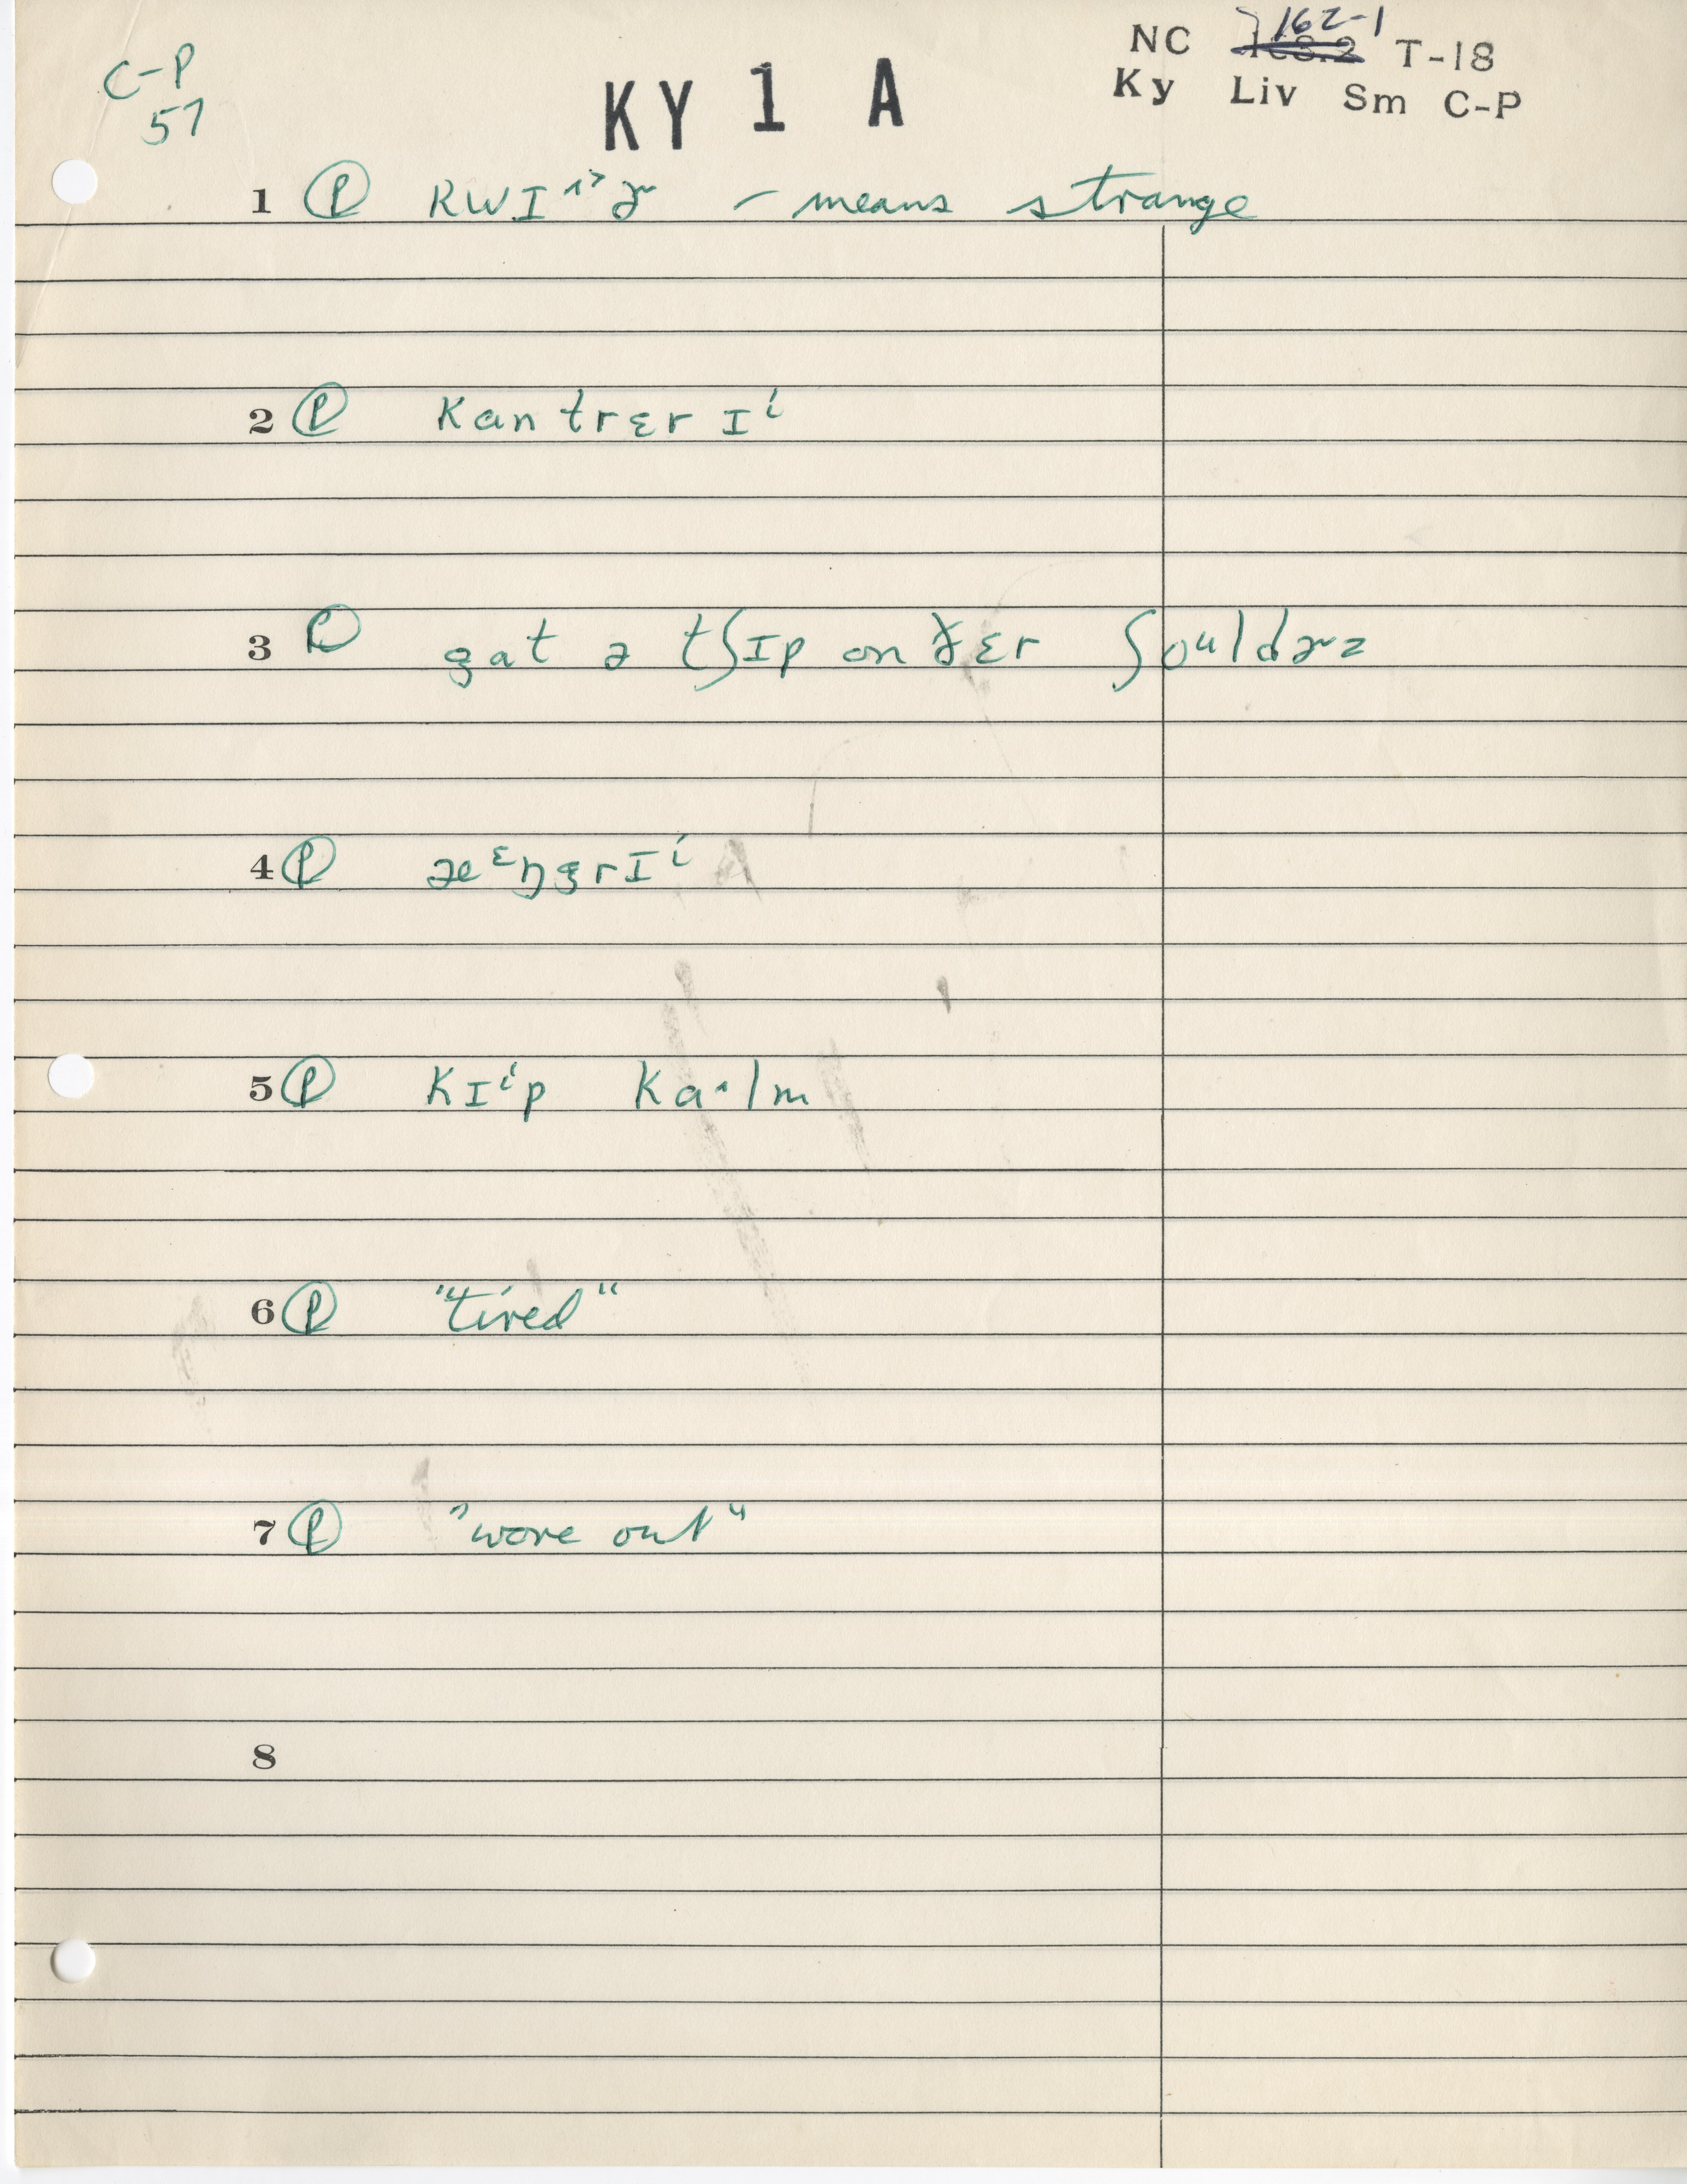 C-P
57
KY 1 A
NC 162-1 T-18
Ky Liv Sm C-P
1 Ⓟ kwɪ^>ɚ – means strange
2 Ⓟ kantrɛrɪⁱ
3 Ⓟ gat ə tʃɪp on ðɛr ʃoᵘldɚz
4 Ⓟ æᵋŋgrɪⁱ
5 Ⓟ kɪⁱp ka^lm
6 Ⓟ "tired"
7 Ⓟ "wore out"
8